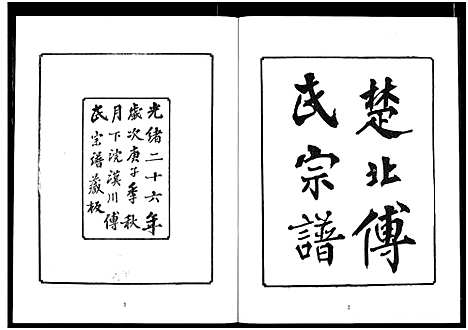 楚北傅
氏宗譜
光緒二十六年
歲次庚子季秋
月下浣漢川傅
氏宗谱藏板
1
2